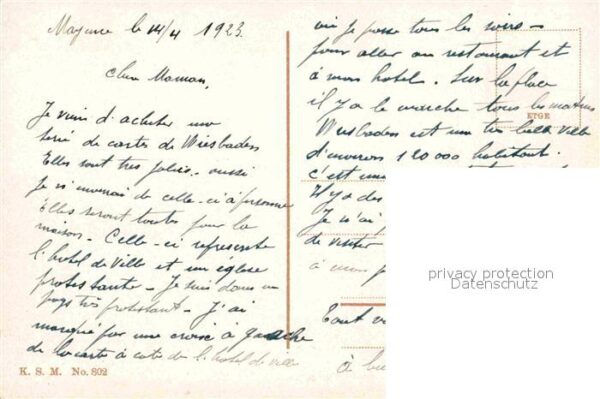 Mayence le 14/4 1923.
Chère Maman,
Je viens d'acheter une
série de cartes de Wiesbaden
Elles sont très jolies. aussi
Je n'enverrai de celle-ci à personne
Elles seront toutes pour la
maison. Celle-ci represente
l'hotel de Ville et un église
protestante. Je suis dans un
pays très protestant. J'ai
marqué par une croix à gauche
de la carte à coté de l'hotel de ville
K. S. M. No. 892
où je passe tous les soirs
pour aller au restaurant et
à mon hotel. Sur la place
il y a le marche tous les matins
ETGE
Wiesbaden est une très belle ville
d'environ 120 000 habitant.
c'est une
Il y a des
Je n'ai
de visiter
à mon
Tout
à
privacy protection
Datenschutz